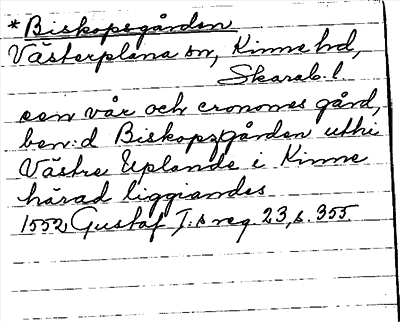 *Biskopsgården
Västerplana sn, Kinne hd,
Skarab. l.
een vår och cronones gård,
ben:d Biskopzgården uthi
Västre Uplande i Kinne
härad liggiandes
1552, Gustaf I:s reg. 23, s. 355.